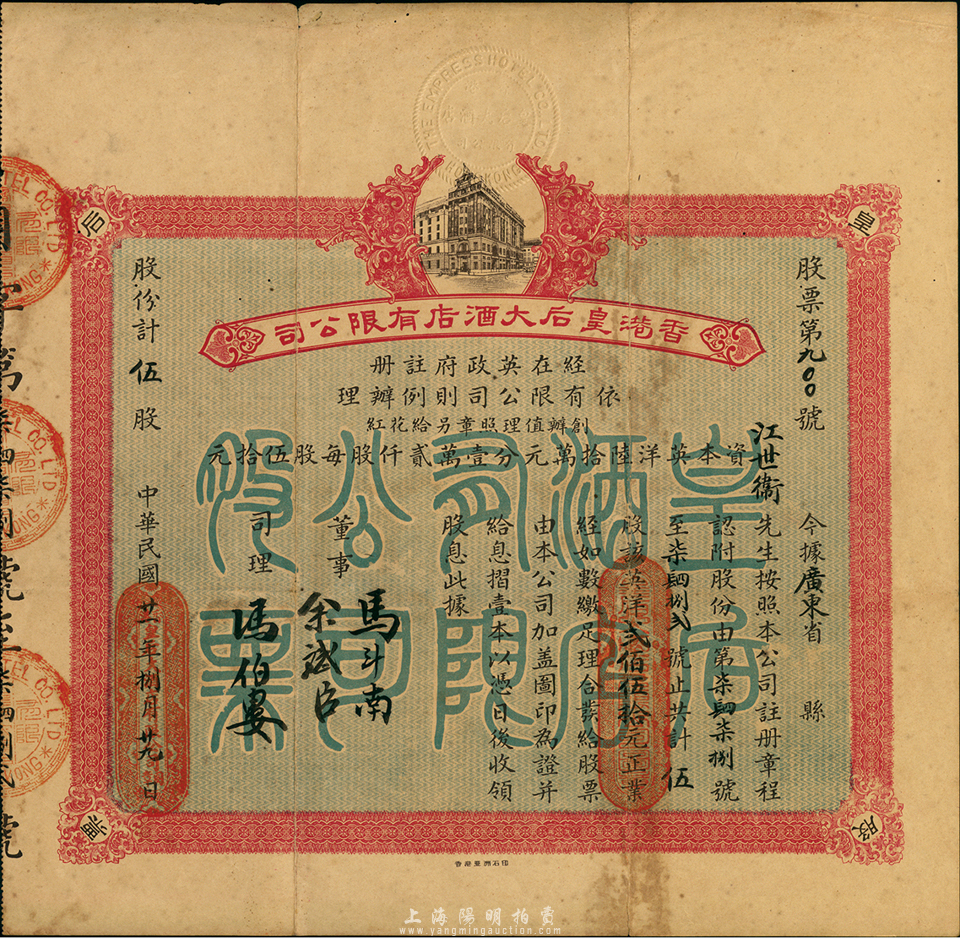 THE EMPRESS HOTEL CO. LTD
HONGKONG
皇后
股票
香港皇后大酒店有限公司
股票第九〇〇號
經在英政府註册
依有限公司則例辦理
創辦值理照章另給花紅
資本英洋陸拾萬元分壹萬貳仟股每股伍拾元
今據廣東省 縣
江世衞先生按照本公司註册章程
認附股份由第柒四柒捌號
至柒四捌弍號止共計伍
股該英洋弍佰伍拾元正業
經如數繳足理合發給股票
由本公司加盖圖印為證并
給息摺壹本以憑日後收領
股息此據
董事 馬斗南
余斌臣
司理 馮伯婁
中華民國廿一年捌月廿九日
股份計伍股
皇后酒店有限公司股票
上海陽明拍賣
www.yangmingauction.com